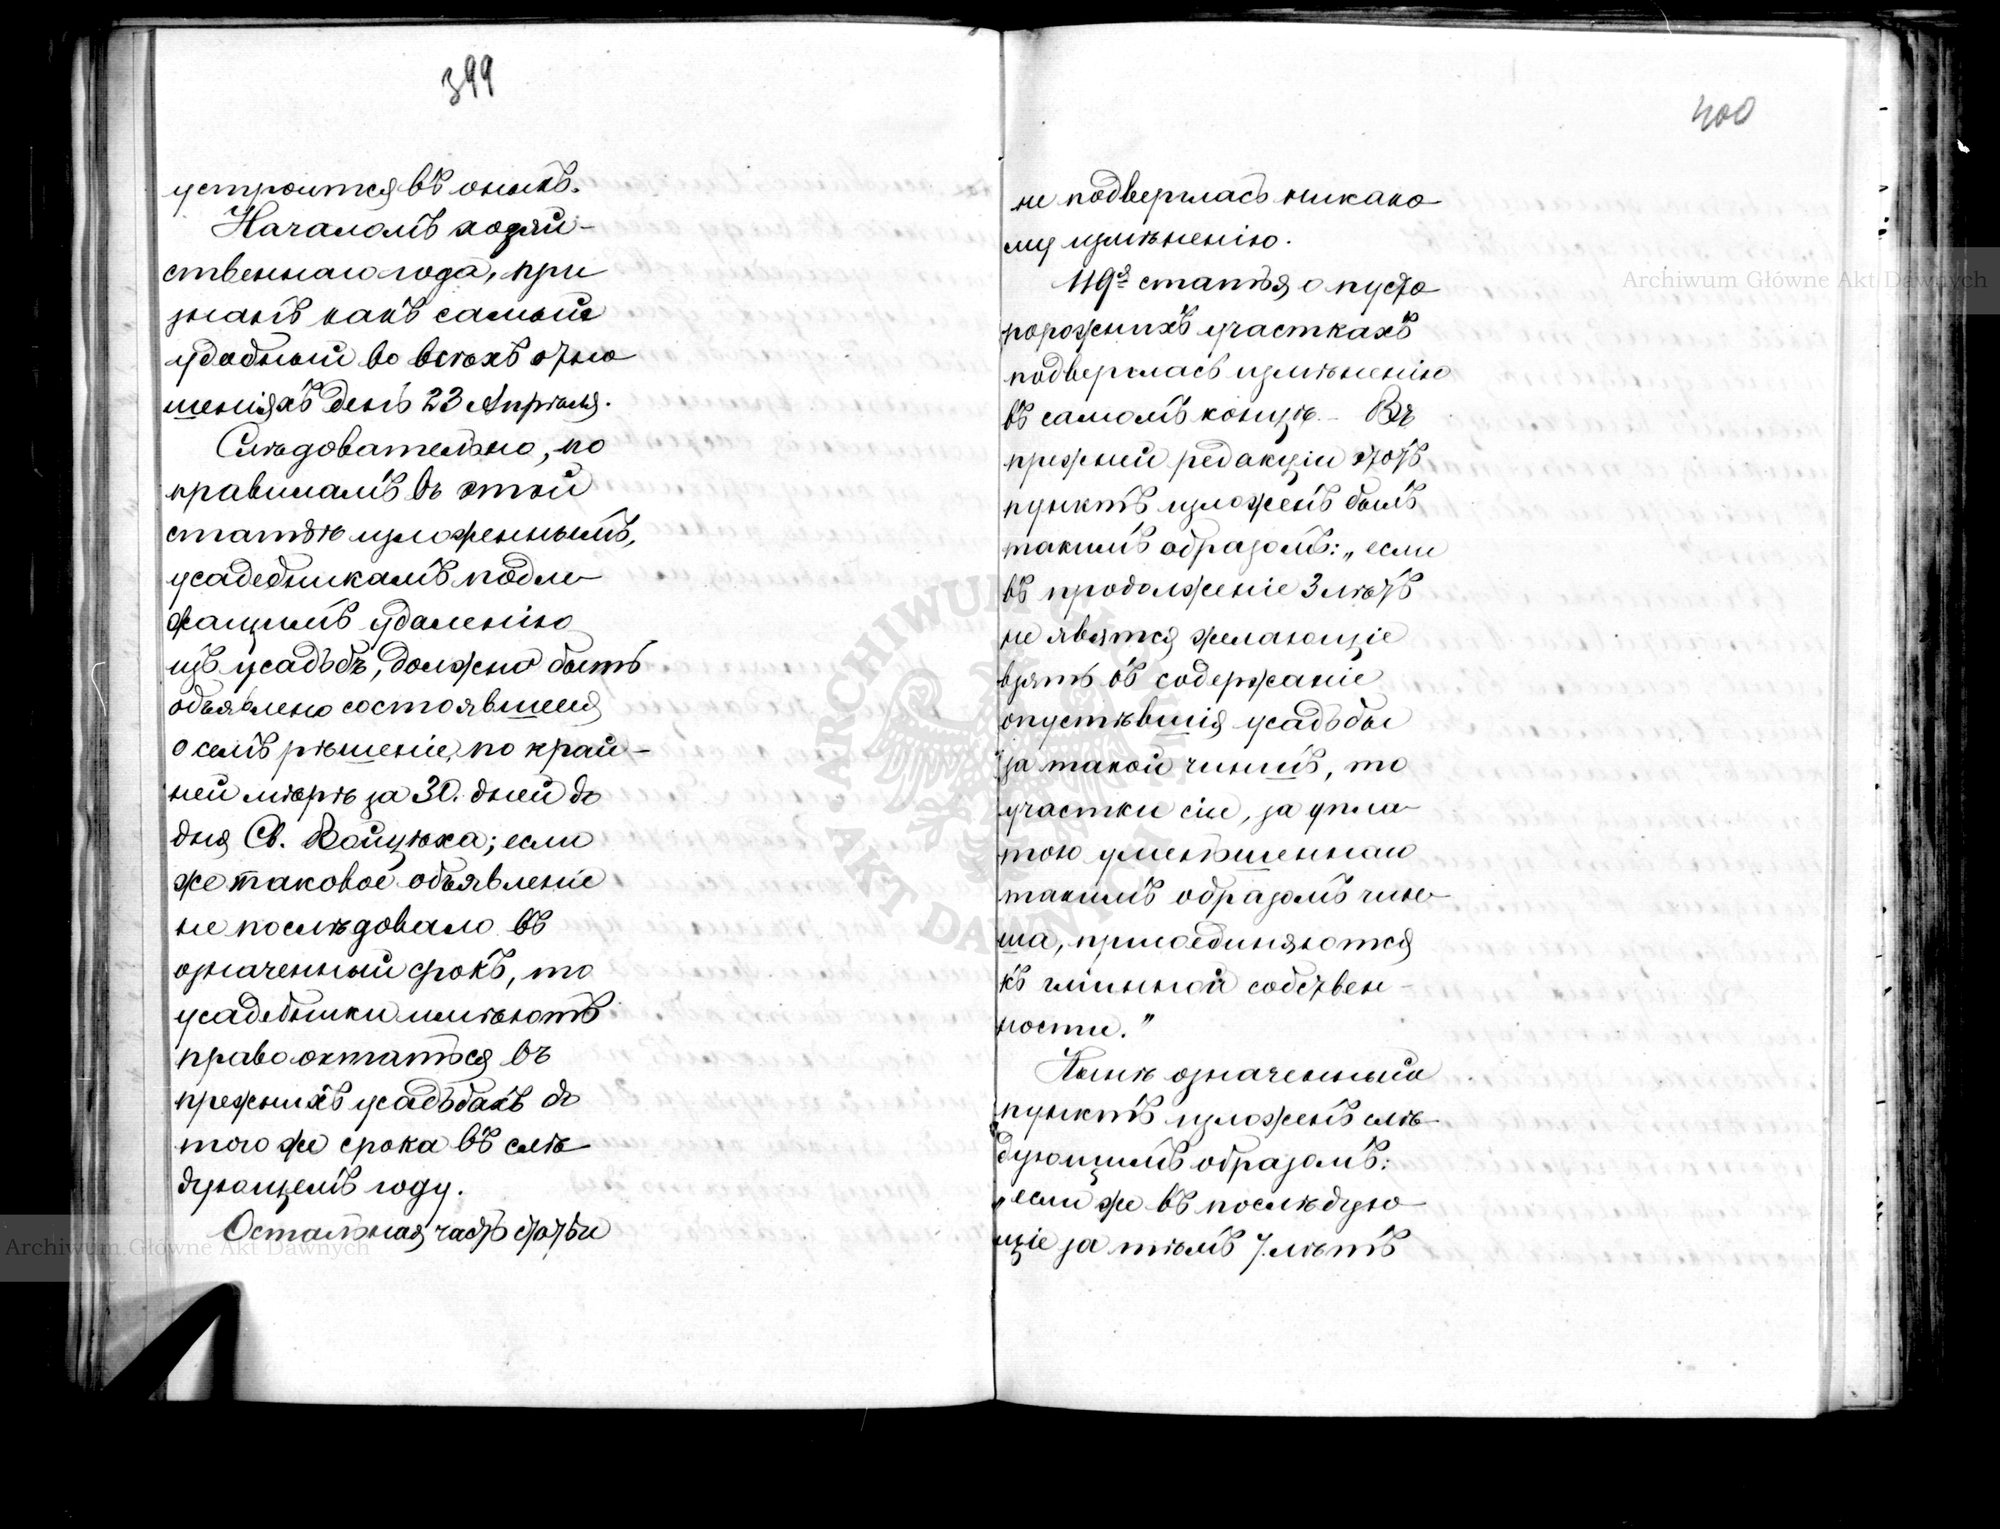 399
устроится въ оныхъ.
Началомъ хозяй-
ственнаго года, при
знанъ какъ самый
удобный во всѣхъ отно
шеніяхъ день 23 Апрѣля.
Слѣдовательно, по
правиламъ въ этой
статьѣ изложеннымъ,
усадебникамъ подле
жащимъ удаленію
изъ усадьбъ, должно быть
объявлено состоявшееся
о семъ рѣшеніе, по край-
ней мѣрѣ за 30. дней до
дня Св. Войцѣха; если
же таковое объявленіе
не послѣдовало въ
означенный срокъ, то
усадебники имѣютъ
право остаться въ
прежнихъ усадьбахъ до
того же срока въ слѣ
дующемъ году.
Остальная часть статьи
400
не подверглась никако
му измѣненію.
119я статья о пусто
порожнихъ участкахъ
подверглась измѣненію
въ самомъ концѣ. - Въ
прежней редакціи этотъ
пунктъ изложенъ былъ
такимъ образомъ: „если
въ продолженіе 3 лѣтъ
не явятся желающіе
взять въ содержаніе
опустѣвшія усадьбы
за такой чиншъ, то
участки сіи, за упла
тою уменьшеннаго
такимъ образомъ чин
ша, присоединяются
къ гминной собствен-
ности.”
Нынѣ означенный
пунктъ изложенъ слѣ
дующимъ образомъ:
„если же въ послѣдую
щіе за тѣмъ 7. лѣтъ
Archiwum Główne Akt Dawnych
Archiwum Główne Akt Dawnych
ARCHIWUM GŁÓWNE AKT DAWNYCH